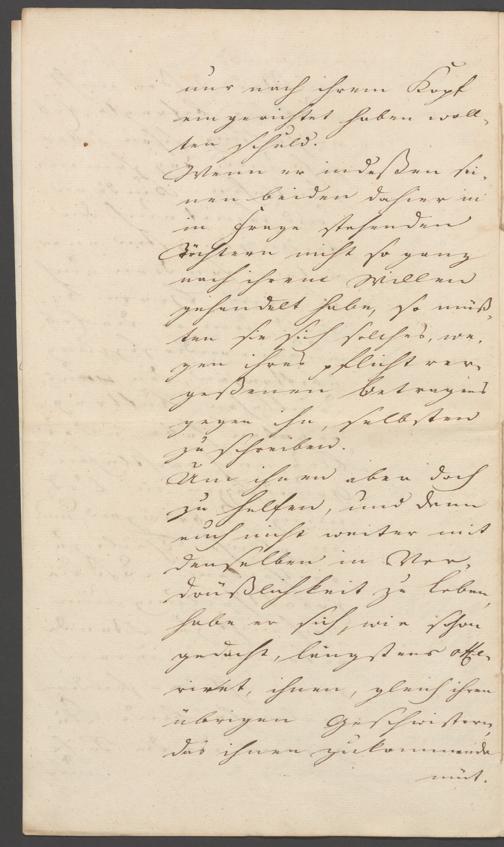 nur nach ihrem Kopf
eingerichtet haben woll-
ten schuld.
Wenn er indeßen sei-
nen beiden dahier in
in Frage stehenden
Töchtern nicht so ganz
nach ihrem Willen
gehandelt habe, so müß-
ten sie sich solches, we-
gen ihres pflicht ver-
geßenen Betragens
gegen ihn, selbsten
zu schreiben.
Um ihnen aber doch
zu helfen, und dann
auch nicht weiter mit
denselben in Ver-
drüßlichkeit zu leben,
habe er sich, wie schon
gedacht, längstens offe-
riret, ihnen, gleich ihren
übrigen Geschwistern,
das ihnen zukommende
müt.